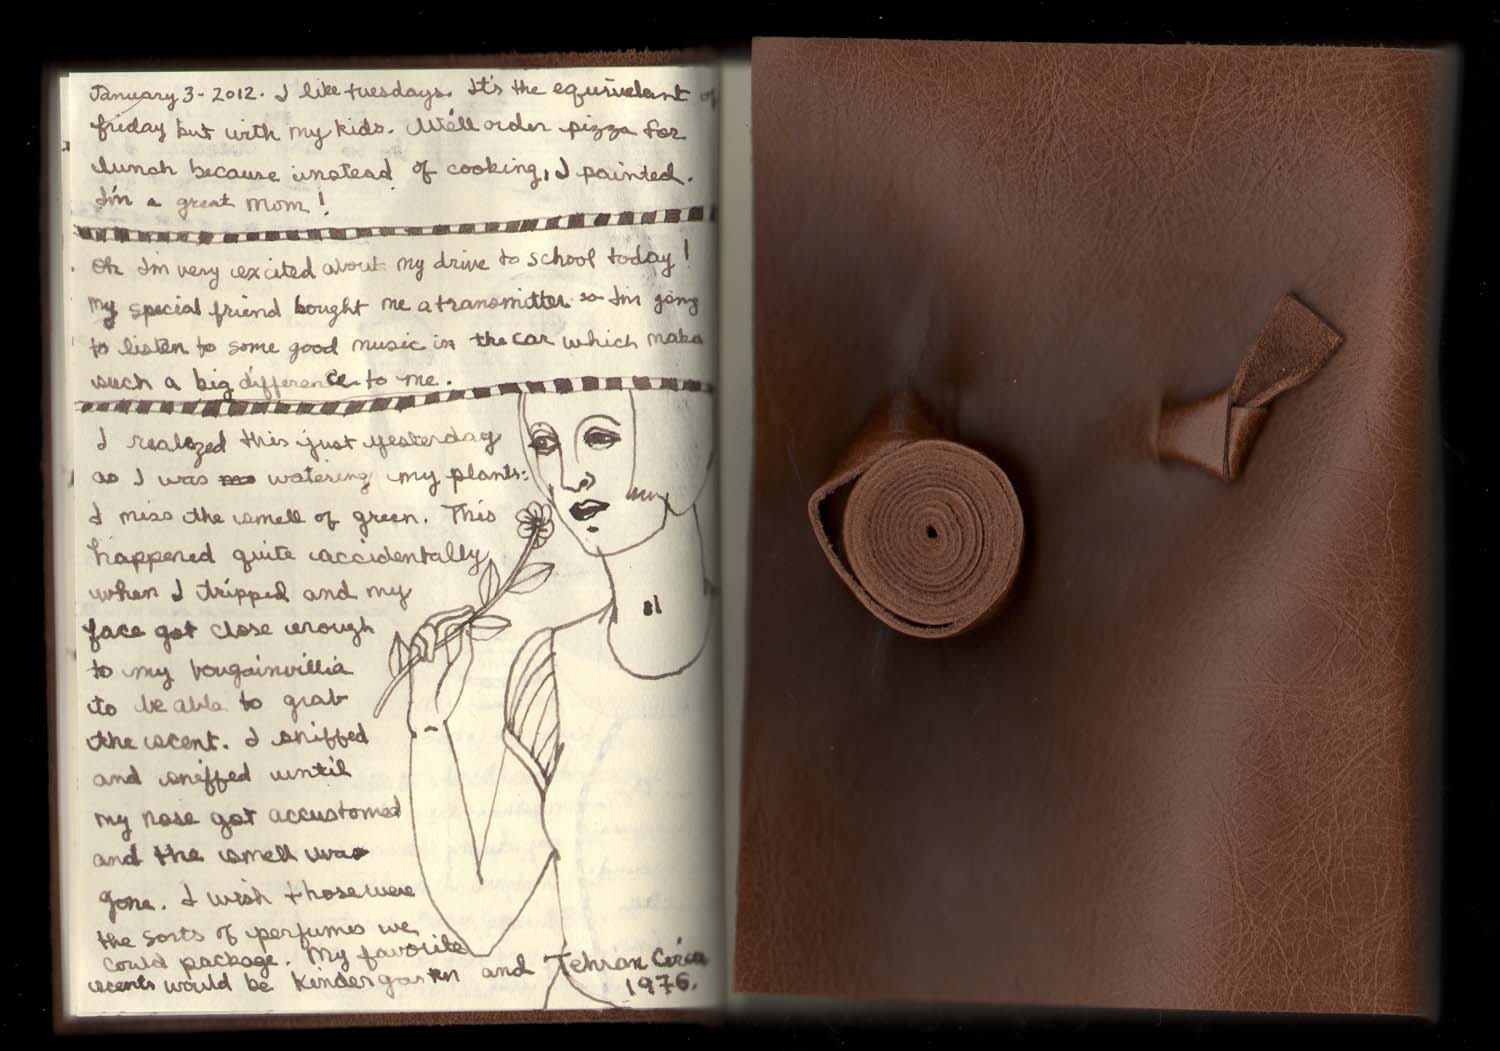 January 3 - 2012. I like tuesdays. It's the equivelant of
friday but with my kids. We'll order pizza for
lunch because instead of cooking, I painted.
I'm a great mom!
Oh I'm very excited about my drive to school today!
my special friend bought me a transmitter so I'm going
to listen to some good music in the car which makes
such a big difference to me.
I realized this just yesterday
as I was watering my plants:
I miss the smell of green. This
happened quite accidentally
when I tripped and my
face got close enough
to my bougainvillia
to be able to grab
the scent. I sniffed
and sniffed until
my nose got accustomed
and the smell was
gone. I wish those were
the sorts of perfumes we
could package. My favorite
scents would be kindergarten and Tehran Circa
1976.